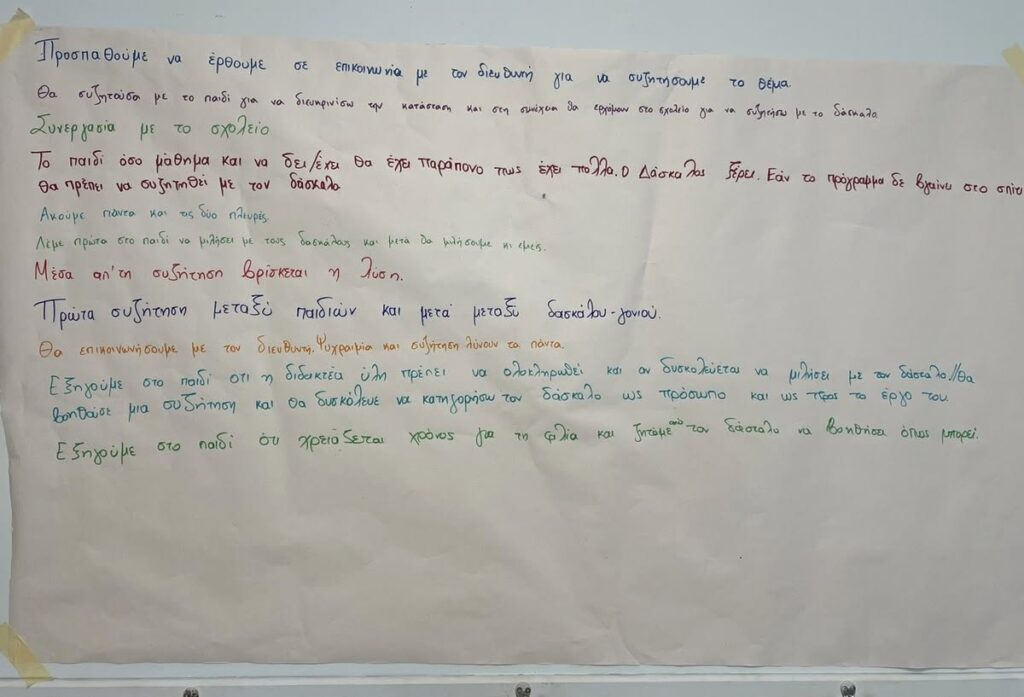 Προσπαθούμε να έρθουμε σε επικοινωνία με τον διευθυντή για να συζητήσουμε το θέμα.
Θα συζητούσα με το παιδί για να διευκρινίσω την κατάσταση και στη συνέχεια θα ερχόμουν στο σχολείο για να συζητήσω με το δάσκαλο.
Συνεργασία με το σχολείο
Το παιδί όσο μάθημα και να δει/έχει θα έχει παράπονο πως έχει πολλα. Ο Δάσκαλος ξέρει. Εάν το πρόγραμμα δε βγαίνει στο σπίτι
θα πρέπει να συζητηθεί με τον δάσκαλο
Ακούμε πάντα και τις δύο πλευρές.
Λέμε πρώτα στο παιδί να μιλήσει με τους δασκάλους και μετά θα μιλήσουμε κι εμείς.
Μέσα απ'τη συζήτηση βρίσκεται η λύση.
Πρώτα συζήτηση μεταξύ παιδιών και μετά μεταξύ δασκάλου-γονιού.
Θα επικοινωνήσουμε με τον διευθυντή. Ψυχραιμία και συζήτηση λύνουν τα πάντα.
Εξηγούμε στο παιδί οτι η διδακτέα ύλη πρέπει να ολοκληρωθεί και αν δυσκολεύεται να μιλήσει με τον δάσκαλο.//Θα
βοηθούσε μια συζήτηση και θα δυσκόλευε να κατηγορήσω τον δάσκαλο ως πρόσωπο και ως προς το έργο του.
Εξηγούμε στο παιδί ότι χρειάζεται χρόνος για τη φιλία και ζητάμε από τον δάσκαλο να βοηθήσει όπως μπορεί.